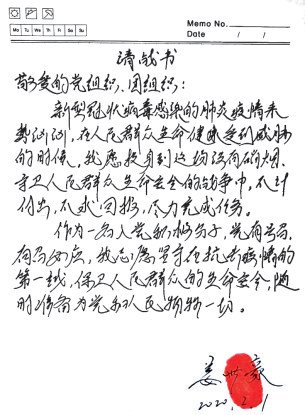 Memo No.
Mo Tu We Th Fr Sa Su
Date / /
请战书
敬爱的党组织、团组织：
新型冠状病毒感染的肺炎疫情来
势汹汹，在人民群众生命健康受到威胁
的时候，我愿投身到这场没有硝烟、
守卫人民群众生命安全的战争中，不计
付出，不求回报，尽力完成任务。
作为一名入党积极分子，党有号召，
我有所应，我志愿坚守在抗击疫情的
第一线，保卫人民群众的生命安全，随
时准备为党和人民牺牲一切。
姜
2020.2.1